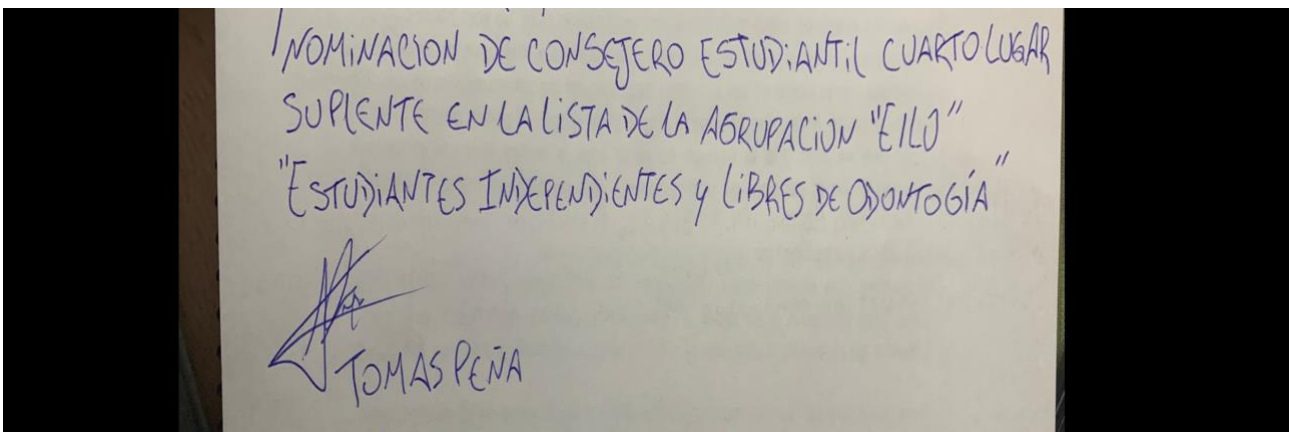 NOMINACION DE CONSEJERO ESTUDIANTIL CUARTO LUGAR
SUPLENTE EN LA LISTA DE LA AGRUPACION "EILO"
"ESTUDIANTES INDEPENDIENTES y LIBRES DE ODONTOGÍA"
TOMAS PEÑA